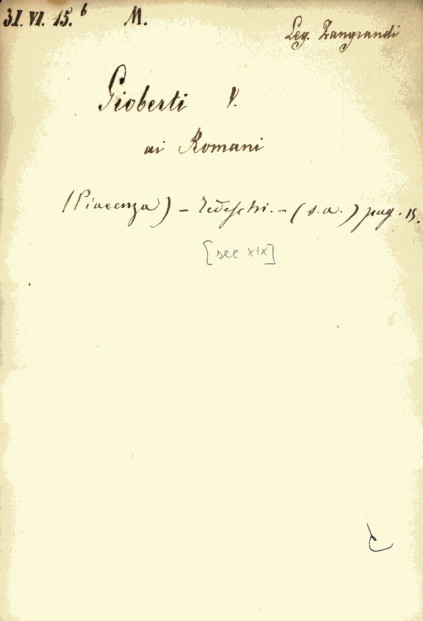 31. VI. 15.6 M.
Leg. Zangrandi
Gioberti V.
ai Romani
(Piacenza) – Tedeschi. – (s.a.) pag. 15.
[sec XIX]